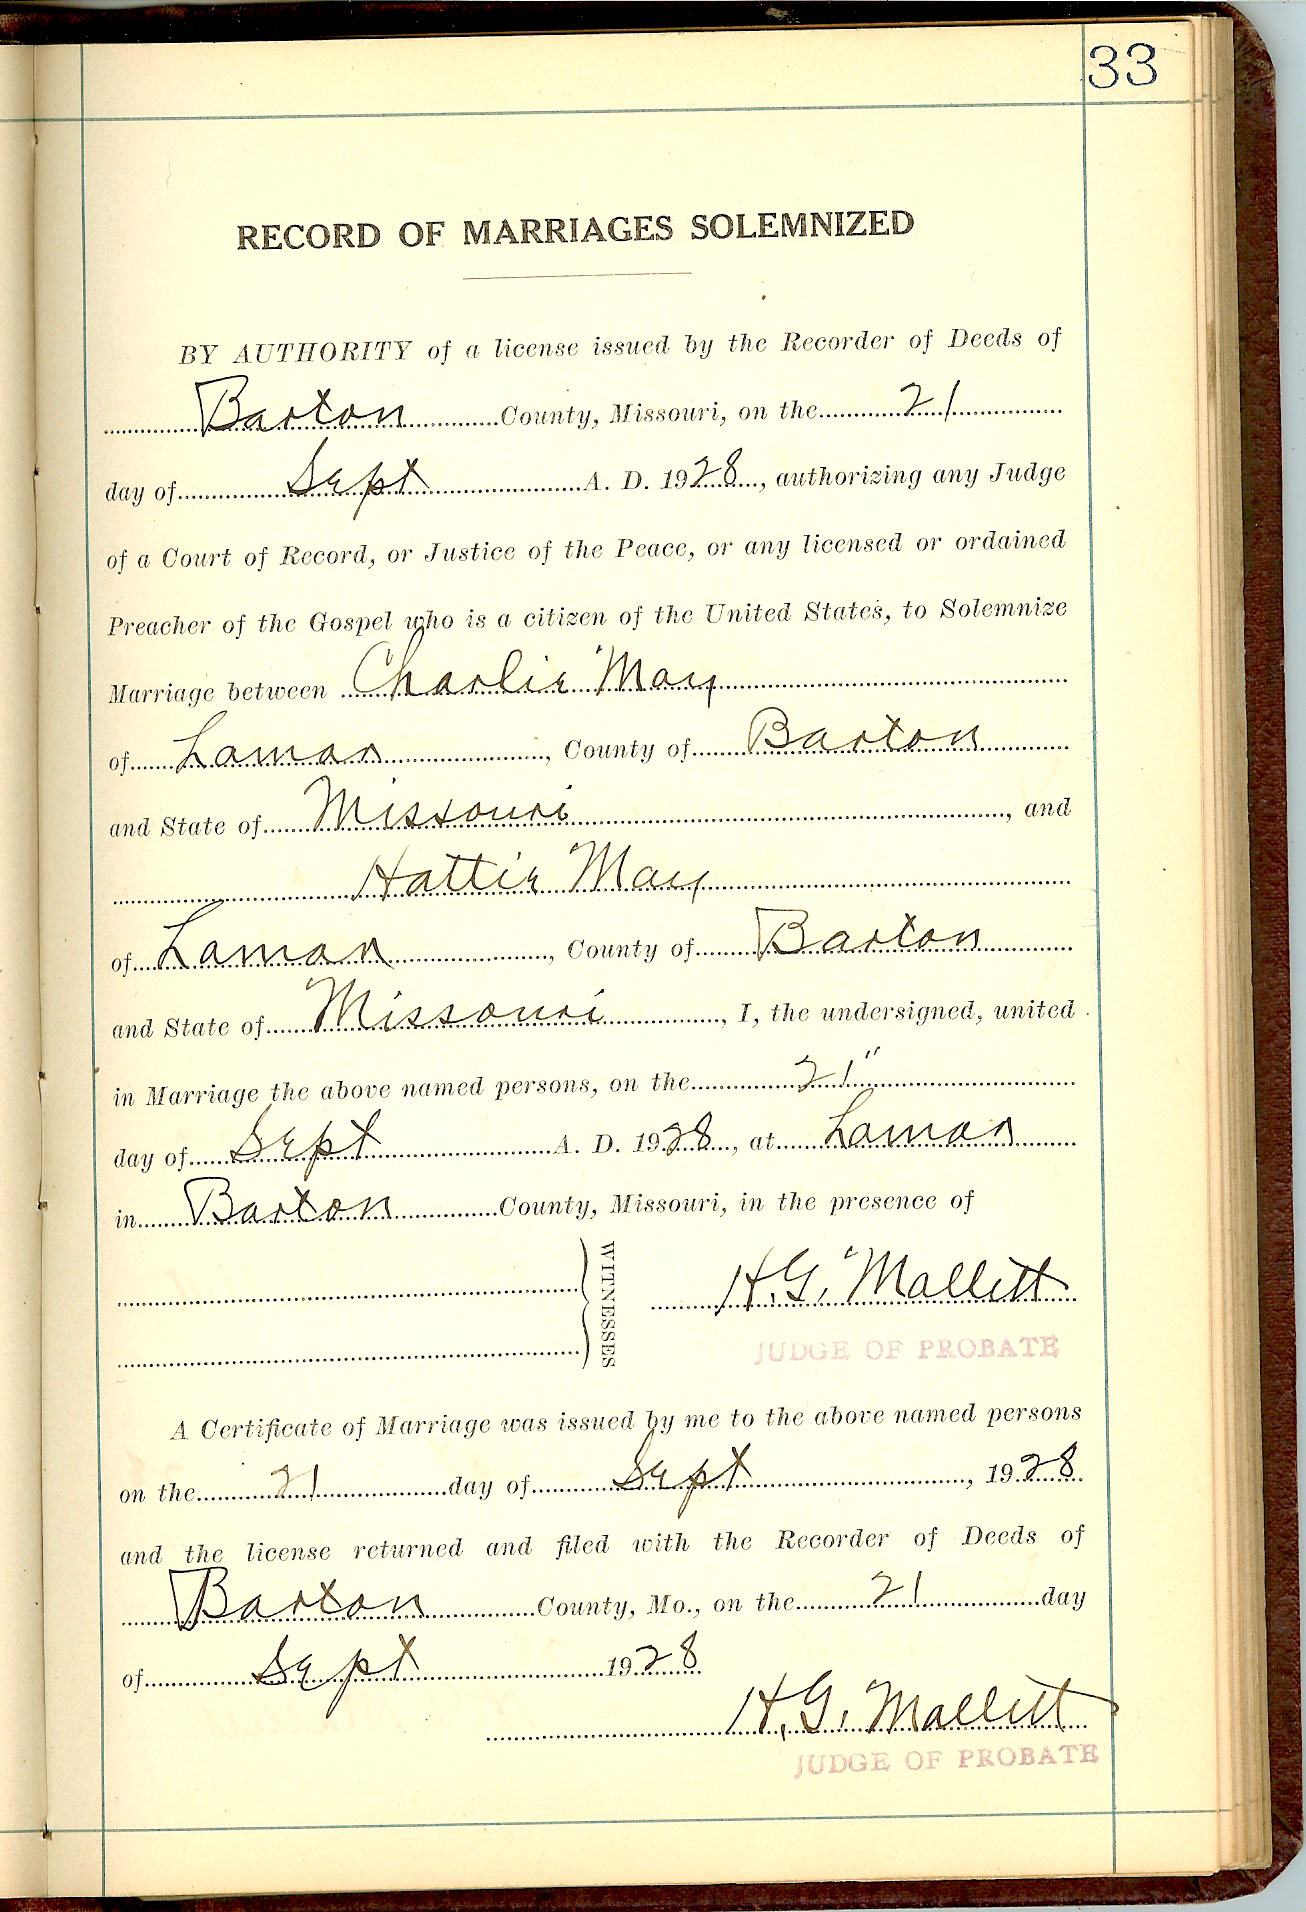 33
RECORD OF MARRIAGES SOLEMNIZED
BY AUTHORITY of a license issued by the Recorder of Deeds of
Barton County, Missouri, on the 21
day of Sept A. D. 1928, authorizing any Judge
of a Court of Record, or Justice of the Peace, or any licensed or ordained
Preacher of the Gospel who is a citizen of the United States, to Solemnize
Marriage between Charlie May
of Lamar, County of Barton
and State of Missouri, and
Hattie May
of Lamar, County of Barton
and State of Missouri, I, the undersigned, united
in Marriage the above named persons, on the 21"
day of Sept A. D. 1928, at Lamar
in Barton County, Missouri, in the presence of
WITNESSES
H. G. Mallett
JUDGE OF PROBATE
A Certificate of Marriage was issued by me to the above named persons
on the 21 day of Sept, 1928
and the license returned and filed with the Recorder of Deeds of
Barton County, Mo., on the 21 day
of Sept 1928
H. G. Mallett
JUDGE OF PROBATE